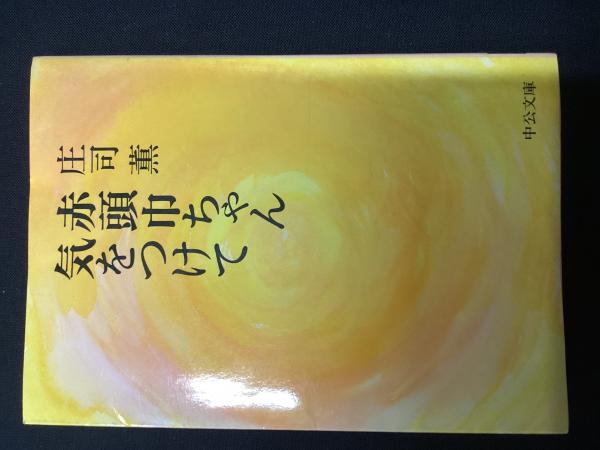 庄司 薫
赤頭巾ちゃん
気をつけて
中公文庫